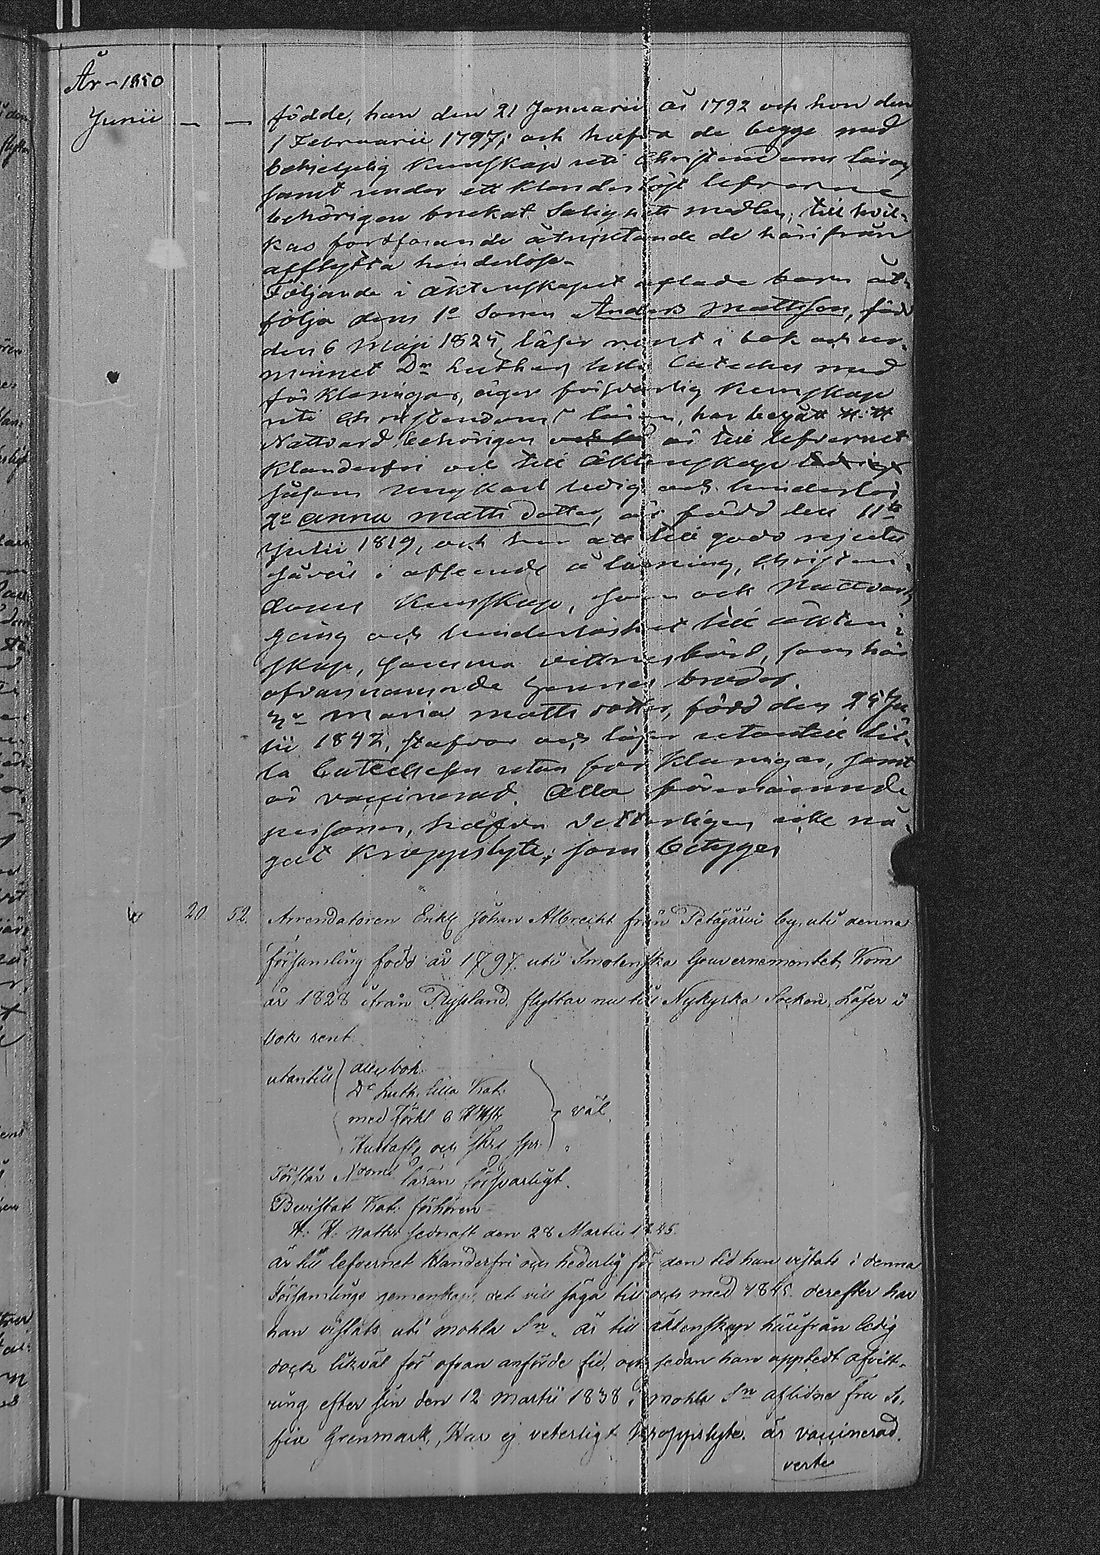 År 1850
Junii — — födde, han den 21 Januarii år 1792 och hon den
1 Februarii 1797; och hafva de begge med
kunskap uti Christendoms läran
samt under ett klanderlöst lefverne
behörigen brukat Salighets medlen, till hvil-
kas fortfarande åtnjutande de härifrån
afflytta hinderlöse.
Följande i äktenskapet aflade barn åt-
följa dem 1o Sonen Anders Mattsson, född
den 6 Maji 1825, läser rent i bok och ur
minnet Dr Luthers lilla Cateches med
förklaringar, äger försvarlig kunskap
uti Christendoms läran, har begått H. H.
Nattvard behörigen är till lefvernet
klanderfri och till äktenskap
såsom ung karl ledig och hinderlös
2o Anna Mattsdotter, är född den 11te
Julii 1819, och
såväl i afseende å läsning, Christen-
doms kunskap, som och Nattvards
gång och hinderlöshet till äkten-
skap, samma vittnesbörd, som här
ofvannämnde hennes broder.
3o Maria Mattsdotter, född den 25 Ju-
lii 1842, stafvar och läser utantill lil-
la Catechesen utan förklaringar, samt
är vaccinerad. Alla förenämnde
personer, hafva veterligen icke nå-
got kroppslyte; som betygas
20 52 Arrendatoren Enkl Johan Albrecht från Petäjärvi by, uti denna
församling född år 1797 uti Smolenska Gouvernementet, Kom
år 1828 ifrån Ryssland, flyttar nu till Nykyrka Socken, Läser i
bok rent.
utantill abc bok
Dr Luth. lilla Kat.
med Förkl. väl.
Hustafl. och Skr. spr.
Förstår läran försvarligt.
Bevistat Kat. förhören
H. H. Nattv. sednast den 28 Martii 1845.
är till lefvernet klanderfri och hederlig för den tid han vistats i denna
Församlings gemenskap, det vill säga till och med 1845. derefter har
han vistats uti Mohla Sn. är till äktenskap härifrån ledig
dock likväl för ofvan anförde tid, och sedan han upptedt afvitt-
ring efter sin den 12 Martii 1838 i Mohla Sn aflidne Fru So-
fia Grenmark, Har ej veterligt kroppslyte. är vaccinerad.
verte